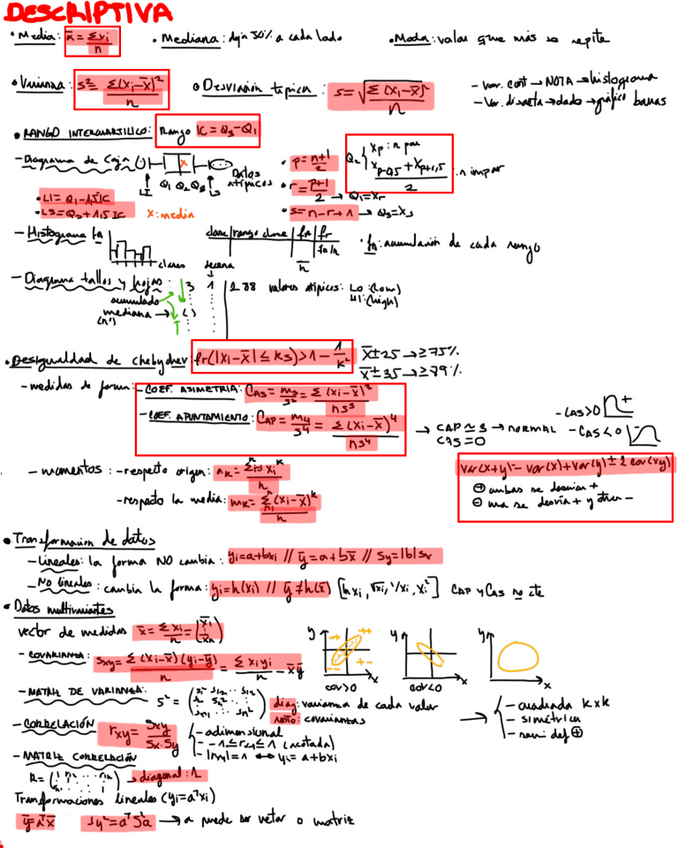 DESCRIPTIVA
• Media: x̄ = Σxi/n • Mediana: deja 50% a cada lado • Moda: valor que más se repite
• Varianza: s² = Σ(xi-x̄)²/n • Desviación típica: s = √Σ(xi-x̄)²/n
- Var. cont → NOTA → histograma
- Var. discreta → dado → gráfico barras
• RANGO INTERCUARTÍLICO: Rango IC = Q3-Q1
- Diagrama de Caja
LI Q1 Q2 Q3 LS Datos atípicos
x: media
• LI = Q1-1,5IC
• LS = Q3+1,5IC
• p = n+1/2
• r = p+1/2 → Q1 = xr
• s = n-r+1 → Q3 = xs
Q2 { xp: n par
xp-0,5 + xp+1,5/2 n impar
- Histograma
clases
clase | rango clase | fa | fr
fa/n
n
• fa: acumulación de cada rango
- Diagrama tallos y hojas: 3 1 | 288 valores atípicos: LO: (low)
HI: (high)
decena
acumulado
mediana → ( )
(nº)
• Desigualdad de chebychev fr(|xi-x̄| ≤ ks) > 1 - 1/k² x̄±2s → ≥75%
x̄±3s → ≥89%
- medidas de forma: - COEF. ASIMETRIA: CAS = m3/s³ = Σ(xi-x̄)³/ns³
- COEF. APUNTAMIENTO: CAP = m4/s⁴ = Σ(xi-x̄)⁴/ns⁴
→ CAP ≃ 3 → NORMAL
CAS = 0
- CAS>0 +
- CAS<0 -
- momentos: - respecto origen: ak = Σxi^k/n
- respecto la media: mk = Σ(xi-x̄)^k/n
var(x+y) = var(x)+var(y) ± 2 cov(xy)
⊕ ambas se desvían +
⊖ una se desvía + y otra -
• Transformación de datos
- Lineales: la forma NO cambia: yi = a+bxi // ȳ = a+bx̄ // sy = |b|sx
- No lineales: cambia la forma: yi = h(xi) // ȳ ≠ h(x̄) [ln xi, √xi, 1/xi, xi²] CAP y CAS no cte
• Datos multivariantes
vector de medidas x̄ = Σxi/n = (x̄1 ⋮ x̄n)
- COVARIANZA: sxy = Σ(xi-x̄)(yi-ȳ)/n = Σxiyi/n - x̄ȳ
y x cov>0
y x cov<0
y x
- MATRIZ DE VARIANZA: S² = diag: varianza de cada valor
resto: covarianzas
→ - cuadrada k×k
- simétrica
- semi def ⊕
- CORRELACIÓN rxy = sxy/sx·sy
- adimensional
- -1 ≤ rxy ≤ 1 (acotada)
- |rxy| = 1 ↔ yi = a+bxi
- MATRIZ CORRELACIÓN
R = → diagonal: 1
Transformaciones lineales (yi = aᵀxi)
ȳ = aᵀx̄ sy² = aᵀS²a → a puede ser vector o matriz